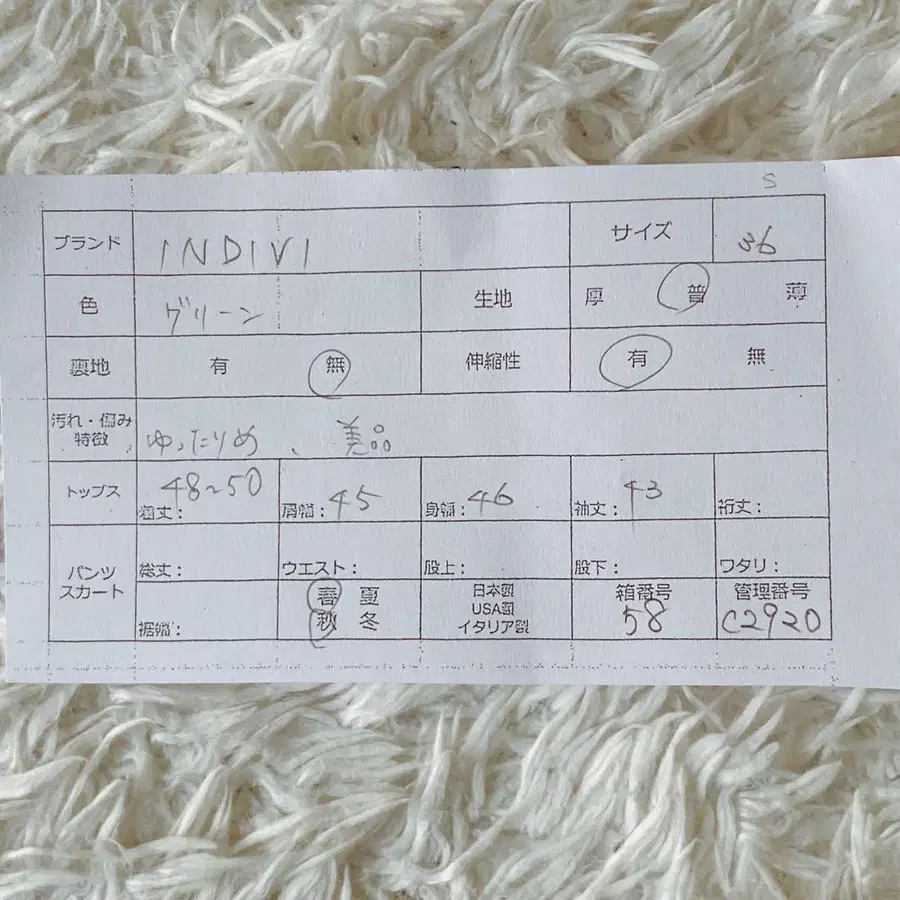 S
ブランド INDIVI サイズ 36
色 グリーン 生地 厚 普 薄
裏地 有 無 伸縮性 有 無
汚れ・傷み
特徴 ゆったりめ、美品
トップス 着丈: 48~50 肩幅: 45 身幅: 46 袖丈: 43 裄丈:
パンツ
スカート 総丈: ウエスト: 股上: 股下: ワタリ:
裾幅: 春 夏 秋 冬 日本製 USA製 イタリア製 箱番号 58 管理番号 C2920